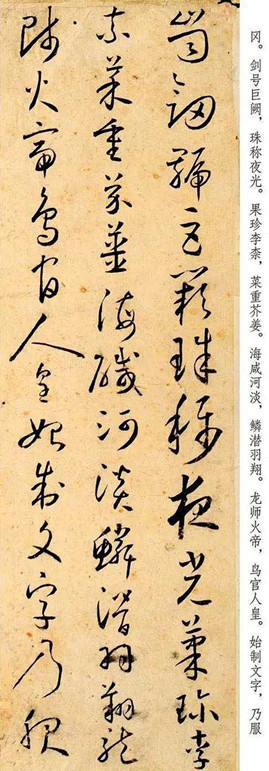 冈。剑号巨阙，珠称夜光。果珍李柰，菜重芥姜。海咸河淡，鳞潜羽翔。龙师火帝，鸟官人皇。始制文字，乃服
崗劒號巨闕珠稱夜光菓珎李
柰菜重芥薑海鹹河淡鱗潛羽翔龍
師火帝鳥官人皇始制文字乃服